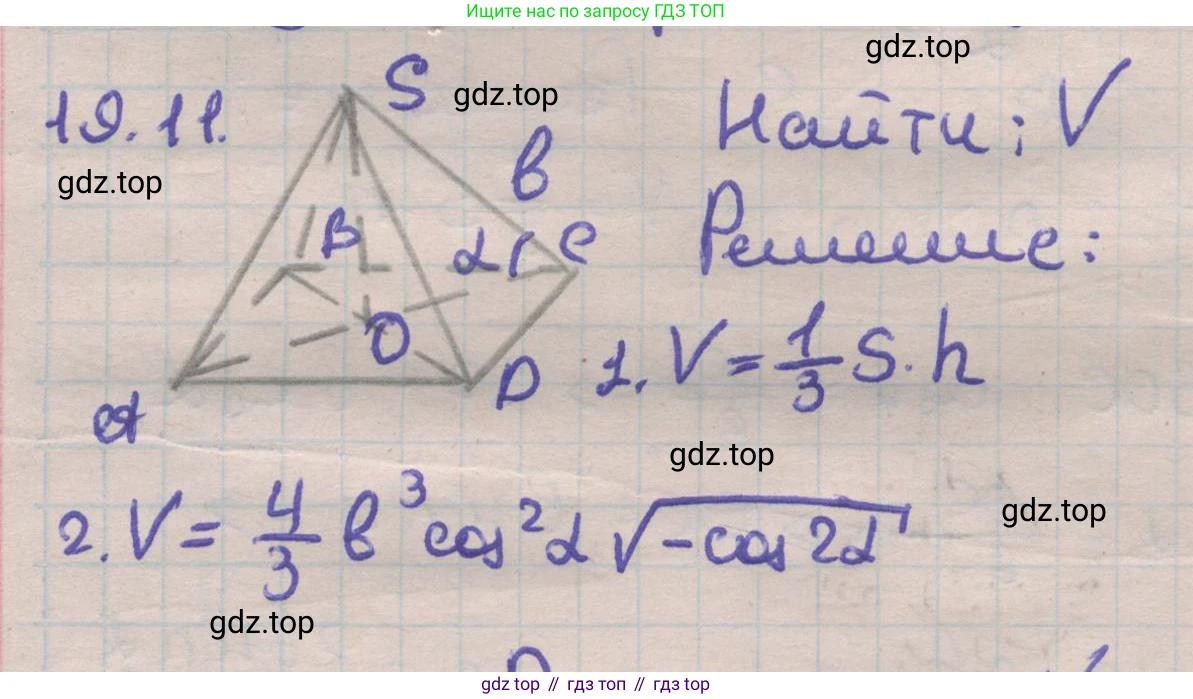 Ищите нас по запросу ГДЗ ТОП
gdz.top
19.11.
S
gdz.top
Найти: V
gdz.top
в
B
α
C
Решение:
O
D
A
1. V = 1/3 S · h
gdz.top
2. V = 4/3 в³ cos² α √(-cos 2α)
gdz.top
gdz.top
gdz top // гдз топ // gdz top